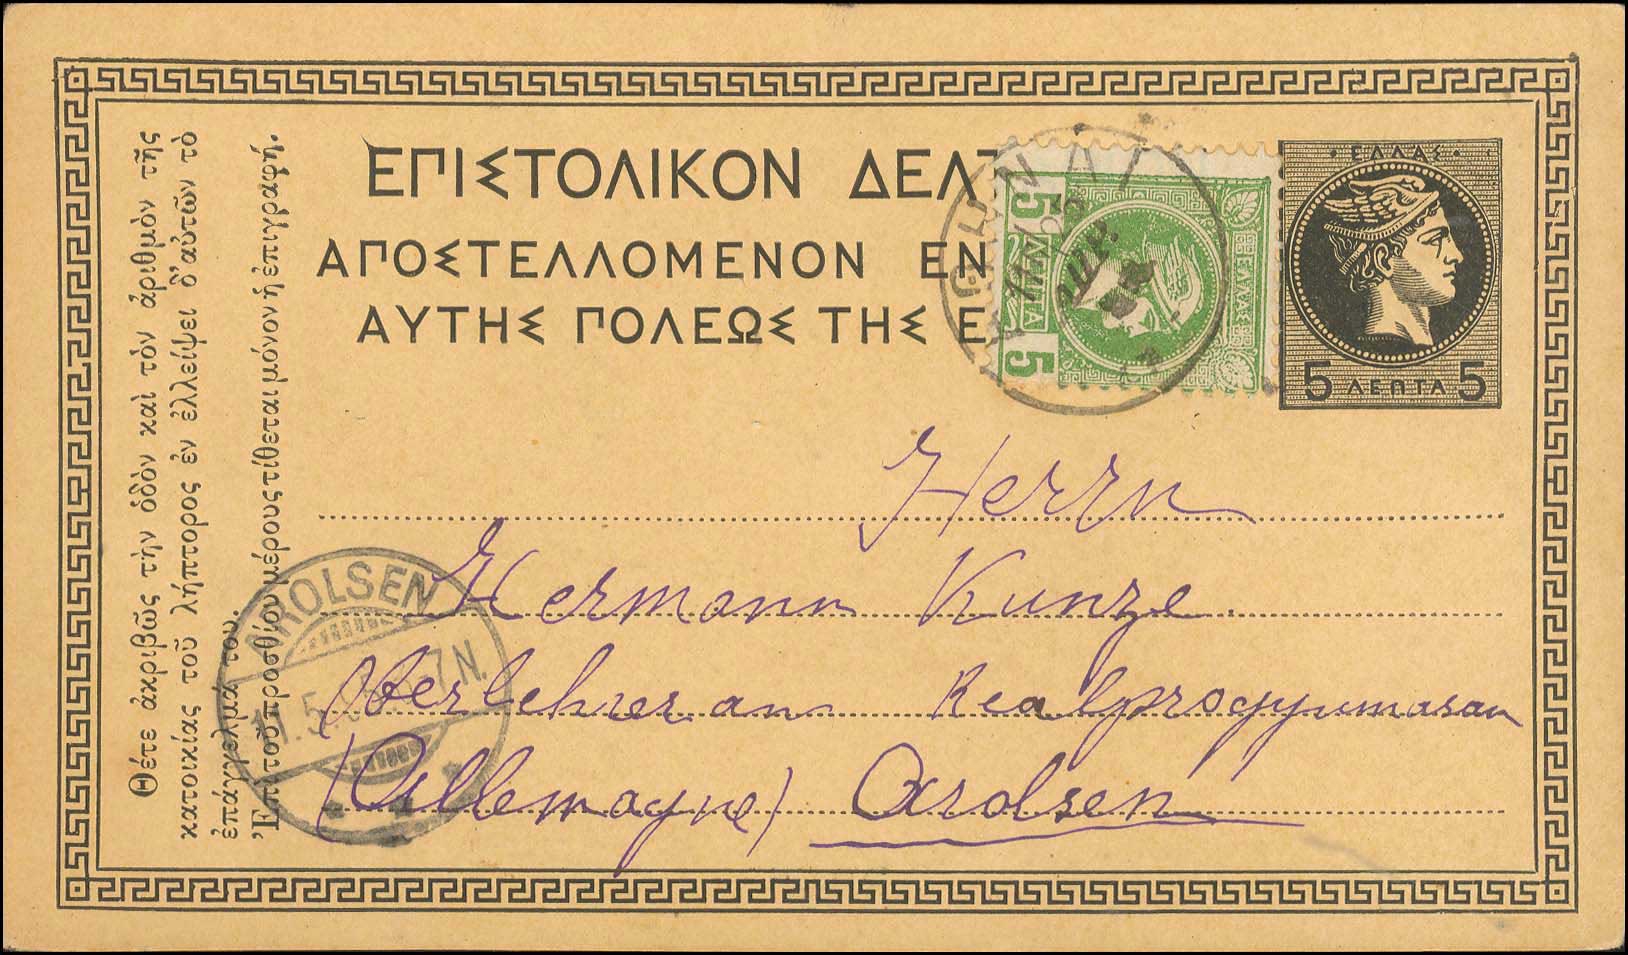 ΕΠΙΣΤΟΛΙΚΟΝ ΔΕΛ
ΑΠΟΣΤΕΛΛΟΜΕΝΟΝ ΕΝ
ΑΥΤΗΣ ΠΟΛΕΩΣ ΤΗΣ Ε
ΕΛΛΑΣ
5 ΛΕΠΤΑ 5
5 ΛΕΠΤΑ 5
ΕΛΛΑΣ
Θέτε ἀκριβῶς τὴν ὁδὸν καὶ τὸν ἀριθμὸν τῆς
κατοικίας τοῦ λήπτορος ἐν ἐλλείψει δ'αὐτῶν τὸ
ἐπάγγελμά του.
Ἐπὶ τοῦ προσθίου μέρους τίθεται μόνον ἡ ἐπιγραφή.
Herrn
Hermann Kunze
Oberlehrer am Realprogymnasium
(Allemagne) Arolsen
AROLSEN